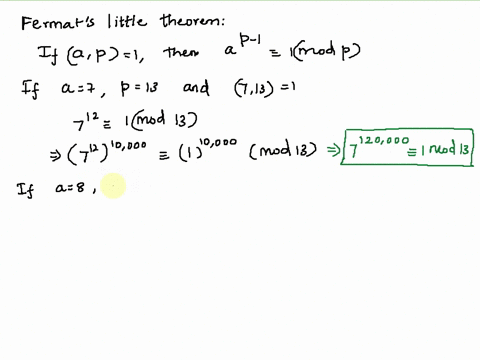 Fermat's little theorem:
If (a, p) = 1, then a^{p-1} ≡ 1 (mod p)
If a = 7, p = 13 and (7,13) = 1
7^{12} ≡ 1 (mod 13)
⇒ (7^{12})^{10,000} ≡ (1)^{10,000} (mod 13) ⇒ 7^{120,000} ≡ 1 mod 13
If a = 8,